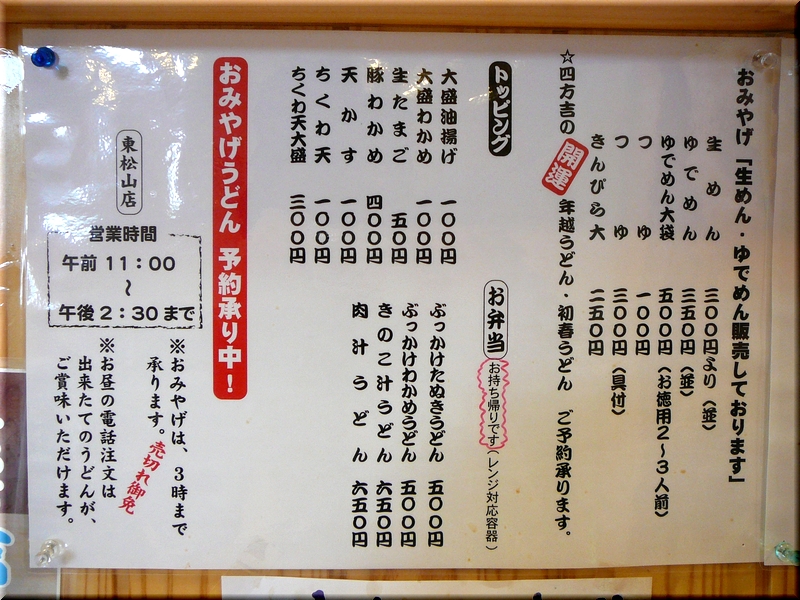 おみやげ「生めん・ゆでめん販売しております」
生めん 三〇〇円より（並）
ゆでめん 三五〇円（並）
ゆでめん大袋 五〇〇円（お徳用２～３人前）
つゆ 一〇〇円
つゆ 三〇〇円（具付）
きんぴら大 二五〇円
☆四方吉の 開運 年越うどん・初春うどん ご予約承ります。
トッピング
大盛油揚げ 一〇〇円
大盛わかめ 一〇〇円
生たまご 五〇円
豚わかめ 四〇〇円
天かす 一〇〇円
ちくわ天 一〇〇円
ちくわ天大盛 三〇〇円
お弁当 お持ち帰りです（レンジ対応容器）
ぶっかけたぬきうどん 五〇〇円
ぶっかけわかめうどん 五〇〇円
きのこ汁うどん 六五〇円
肉汁うどん 六五〇円
おみやげうどん 予約承り中！
※おみやげは、３時まで
承ります。売切れ御免
※お昼の電話注文は
出来たてのうどんが、
ご賞味いただけます。
東松山店
営業時間
午前 11：00
～
午後 2：30 まで